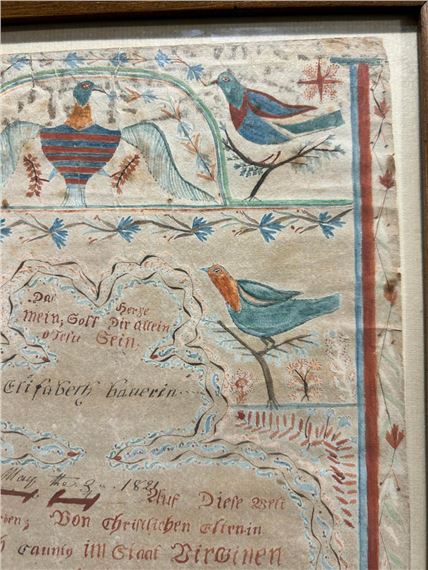 Das Herze
mein, Soll Dir allein
o Jesu Sein.
Elisabeth bauerin
May the 1821
Auf Diese Welt
Von Christlichen Eltern in
Caunty im Staat Virginen